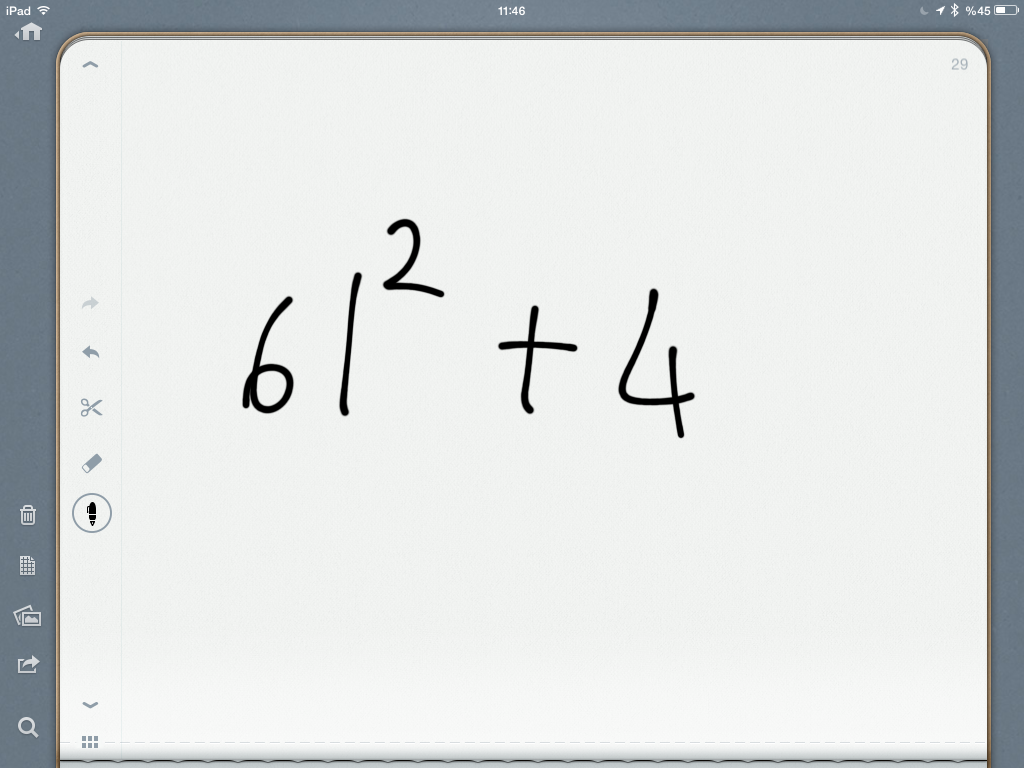 iPad 11:46 %45
29
61² + 4